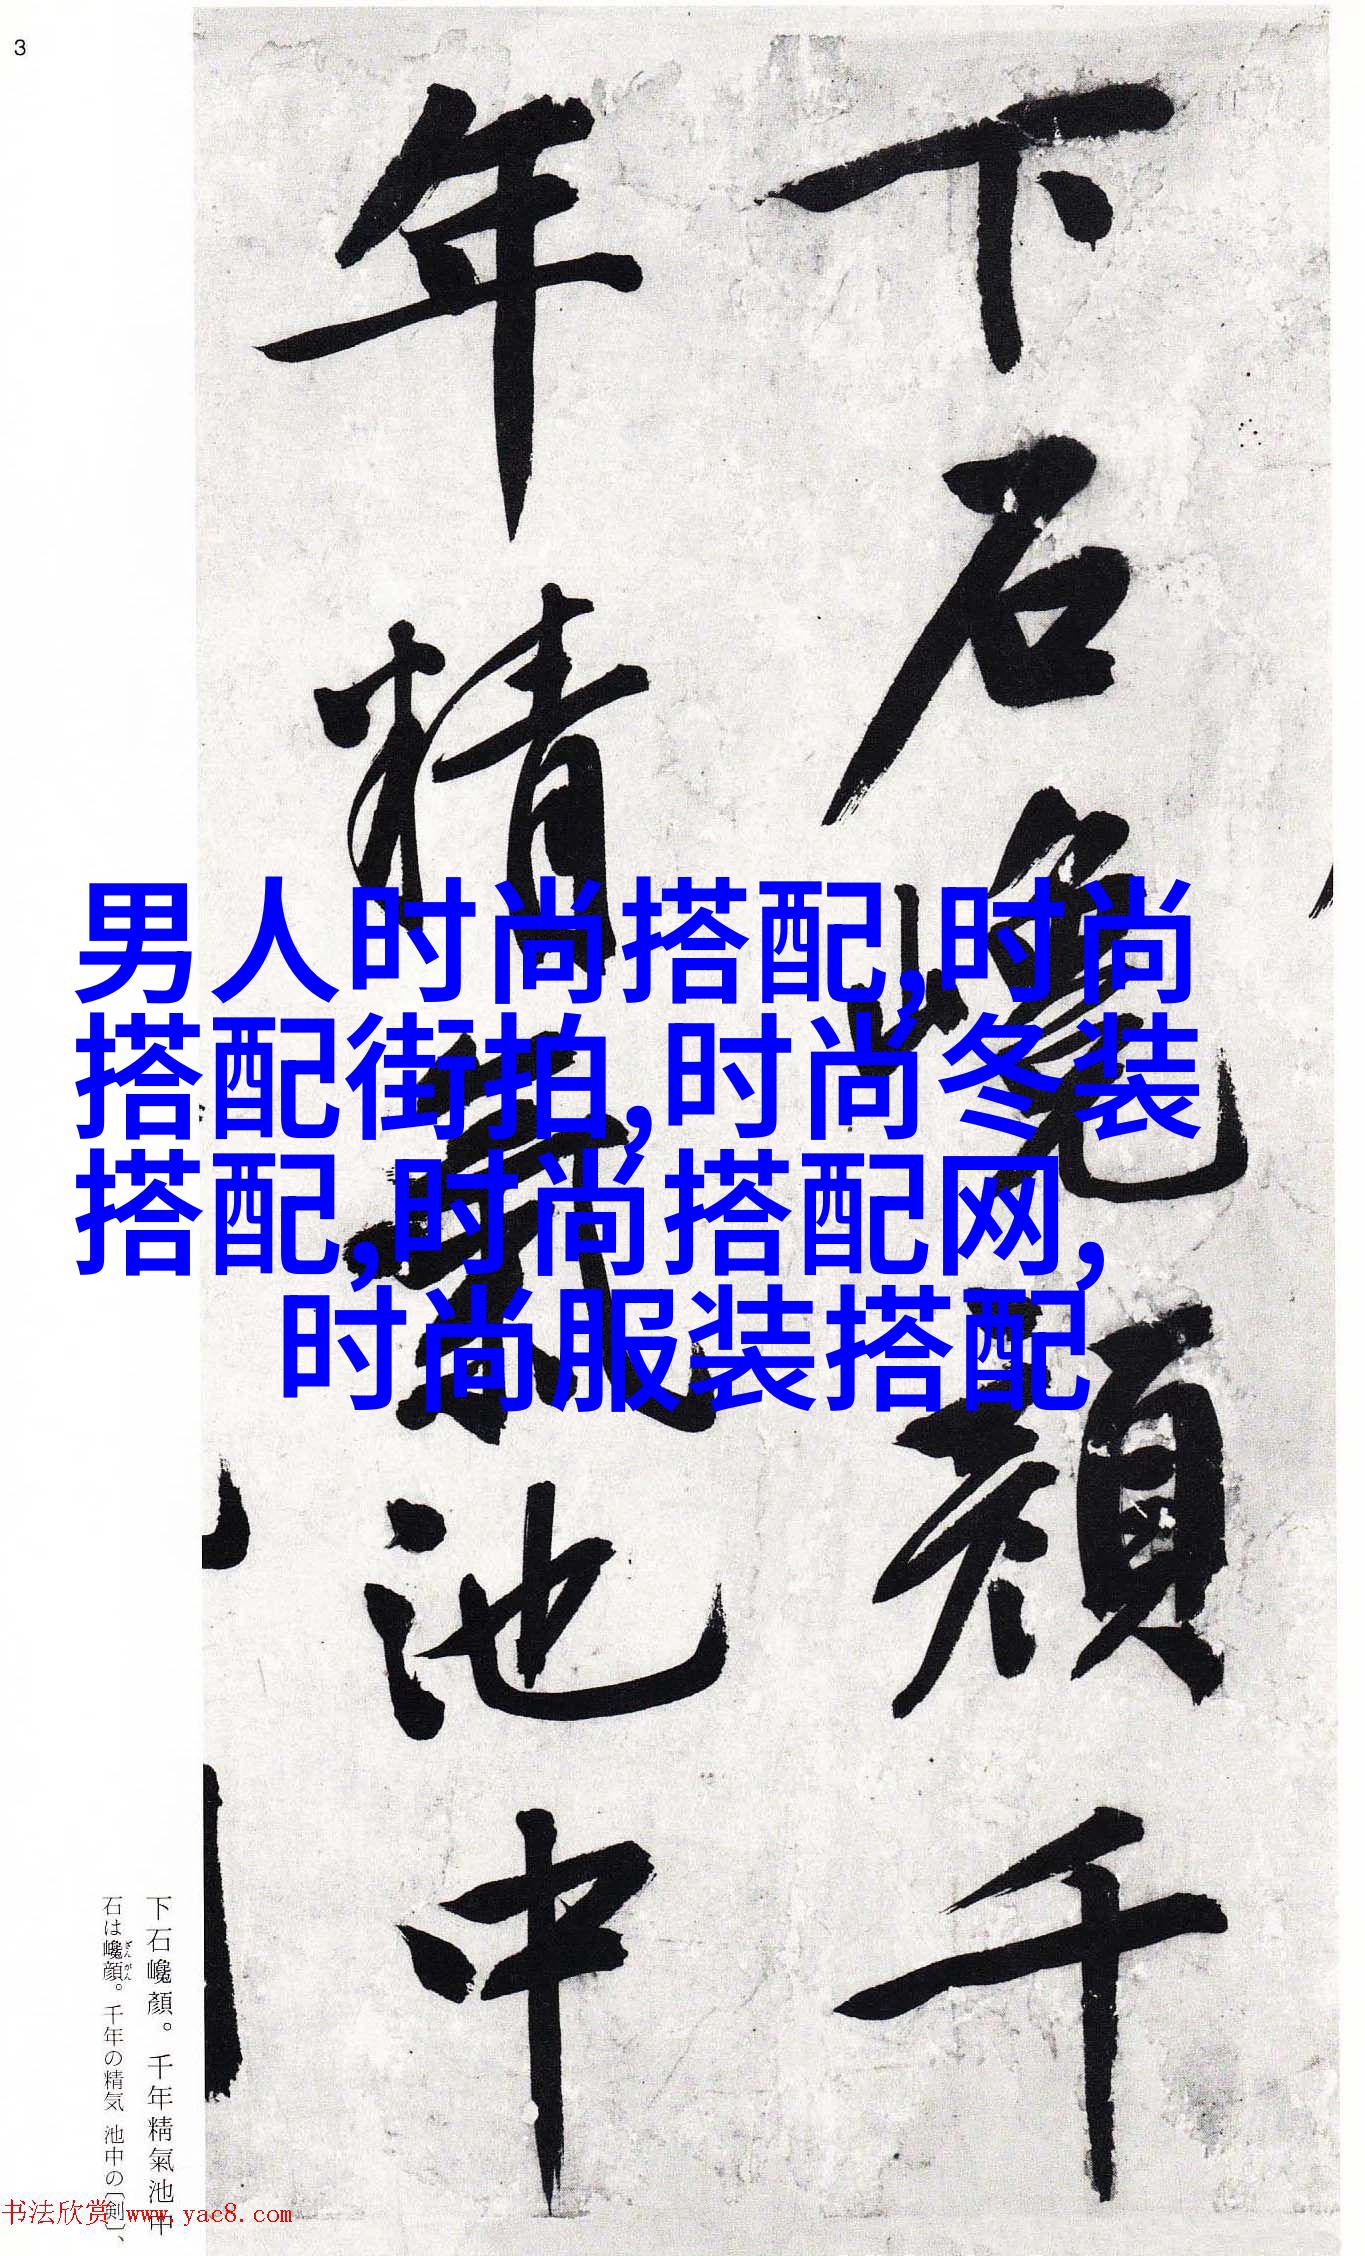 3
下石巉顏千
年精氣池中
男人时尚搭配,时尚
搭配街拍,时尚冬装
搭配,时尚搭配网,
时尚服装搭配
下石巉顏。千年精氣池中
石は巉顔。千年の精気 池中の〔剣〕、
ざん がん
书法欣赏 www.yac8.com